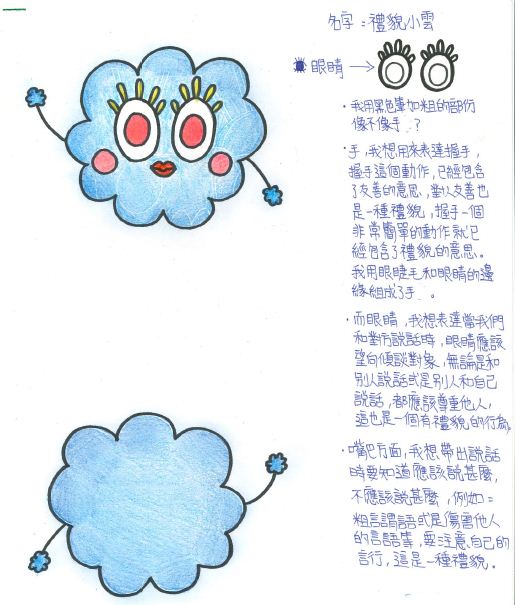 名字：禮貌小雲
眼睛→
・我用黑色筆加粗的部份
像不像手．？
・手，我想用來表達握手，
握手這個動作，已經包含
了友善的意思，對人友善也
是一種禮貌，握手一個
非常簡單的動作就已
經包含了禮貌的意思。
我用眼睫毛和眼睛的邊
緣組成了手．。
・而眼睛，我想表達當我們
和對方說話時，眼睛應該
望向傾談對象，無論是和
別人說話或是別人和自己
說話，都應該尊重他人，
這也是一個有禮貌的行為。
・嘴吧方面，我想帶出說話
時要知道應該說甚麼，
不應該說甚麼，例如：
粗言謂語或是傷害他人
的言語等，要注意自己的
言行，這是一種禮貌．